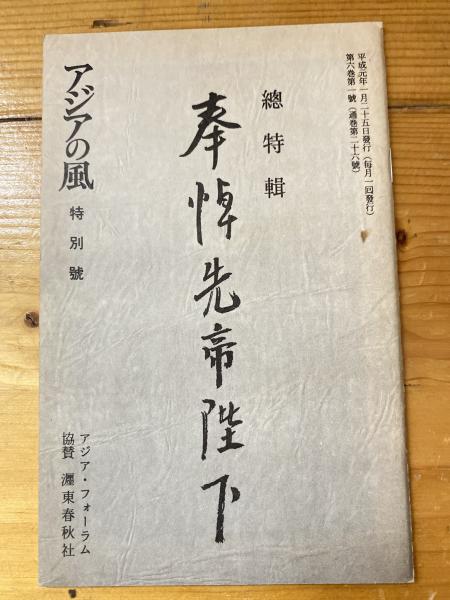 平成元年一月二十五日發行（每月一回發行）
第六巻第一號（通巻第二十六號）
總特輯
奉悼先帝陛下
アジアの風
特別號
アジア・フォーラム
協賛 瀝東春秋社